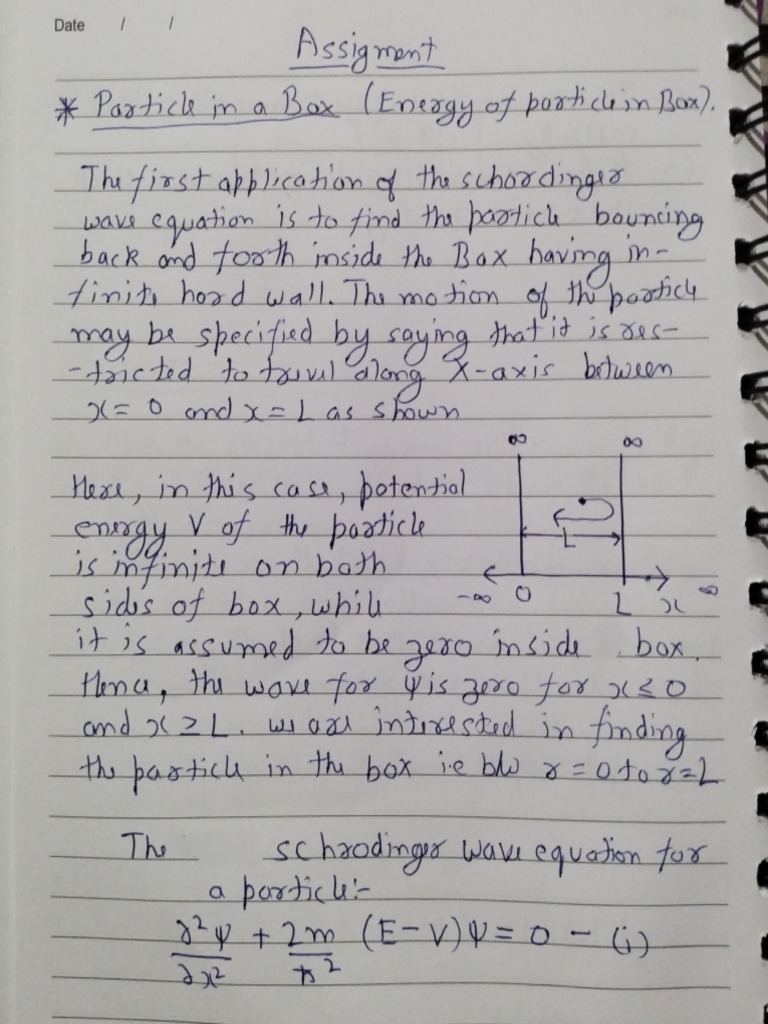 Date / /
Assigment
* Particle in a Box (Energy of particle in Box).
The first application of the schordinger
wave equation is to find the particle bouncing
back and forth inside the Box having in-
finite hard wall. The motion of the particle
may be specified by saying that it is res-
-tricted to travel along X-axis between
x = 0 and x = L as shown
∞ ∞
Here, in this case, potential
energy V of the particle
L
is infinite on both
sides of box, while
-∞ 0 L x ∞
it is assumed to be zero inside box.
Hence, the wave for ψ is zero for x ≤ 0
and x ≥ L. we are interested in finding
the particle in the box i.e b/w x = 0 to x = L
The schrodinger wave equation for
a particle:-
∂²ψ/∂x² + 2m/ħ² (E-V)ψ = 0 - (i)